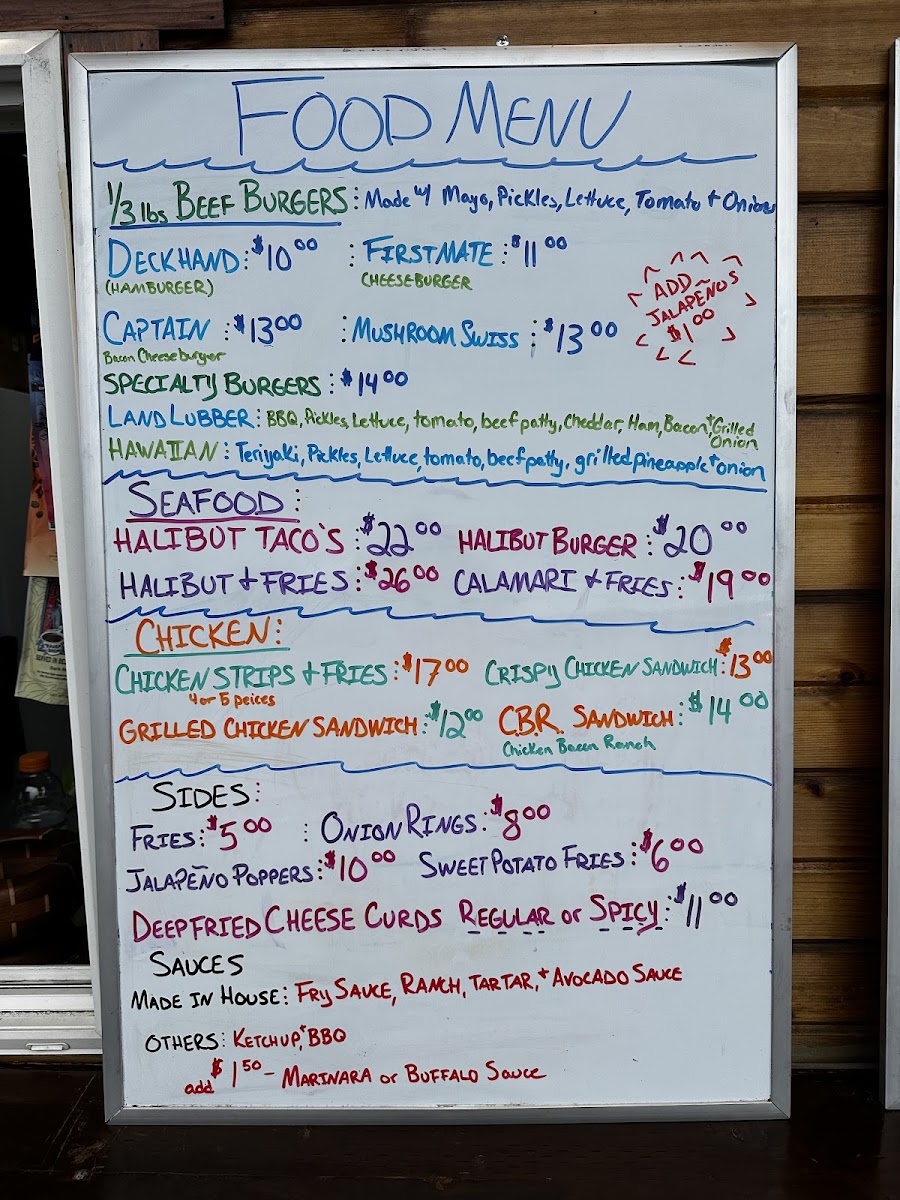 FOOD MENU
1/3 lbs BEEF BURGERS: Made w/ Mayo, Pickles, Lettuce, Tomato + Onions
DECKHAND: $10.00 : FIRST MATE: $11.00
(HAMBURGER) CHEESEBURGER
ADD
JALAPEÑOS
$1.00
CAPTAIN: $13.00 : MUSHROOM SWISS: $13.00
Bacon Cheeseburger
SPECIALTY BURGERS: $14.00
LAND LUBBER: BBQ, Pickles, Lettuce, tomato, beef patty, Cheddar, Ham, Bacon + Grilled
Onion
HAWAIIAN: Teriyaki, Pickles, Lettuce, tomato, beef patty, grilled pineapple + onion
SEAFOOD:
HALIBUT TACO'S: $22.00 HALIBUT BURGER: $20.00
HALIBUT + FRIES: $26.00 CALAMARI + FRIES: $19.00
CHICKEN:
CHICKEN STRIPS + FRIES: $17.00 CRISPY CHICKEN SANDWICH: $13.00
4 or 5 peices
GRILLED CHICKEN SANDWICH: $12.00 C.B.R. SANDWICH: $14.00
Chicken Bacon Ranch
SIDES:
FRIES: $5.00 : ONION RINGS: $8.00
JALAPEÑO POPPERS: $10.00 SWEET POTATO FRIES: $6.00
DEEP FRIED CHEESE CURDS REGULAR or SPICY: $11.00
SAUCES
MADE IN HOUSE: FRY SAUCE, RANCH, TARTAR, + AVOCADO SAUCE
OTHERS: KETCHUP, + BBQ
add $1.50 - MARINARA or BUFFALO SAUCE